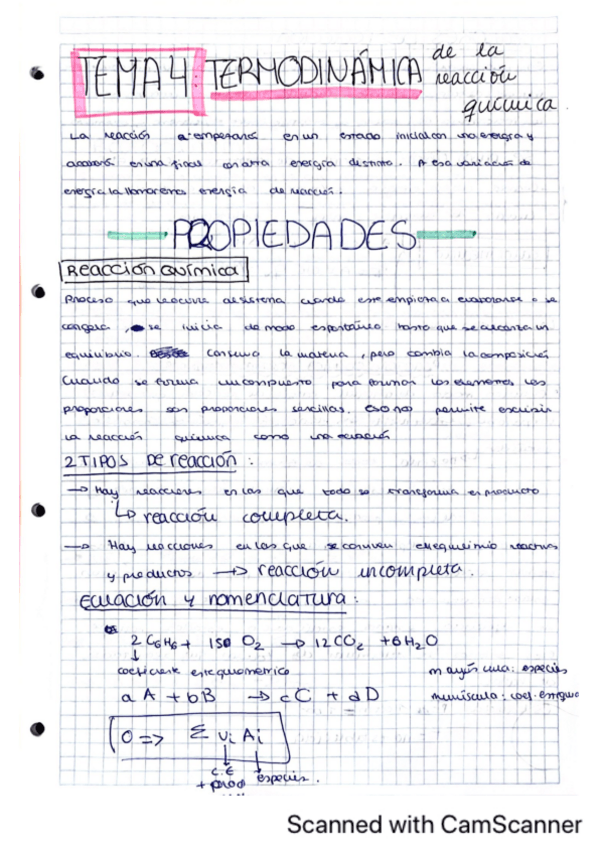 TEMA 4: TERMODINÁMICA de la reacción química
La reacción empezará en un estado inicial con una energía y
acabará en una final con otra energía distinta. A esa variación de
energía la llamaremos energía de reacción.
PROPIEDADES
Reacción Química
Proceso que ocurre al sistema cuando este empieza a evaporarse o se
congela, se inicia de modo espontáneo hasta que se alcanza un
equilibrio. Conserva la materia, pero cambia la composición
Cuando se forma un compuesto para formar los elementos, las
proporciones son proporciones sencillas. Eso nos permite escribir
la reacción química como una ecuación
2 TIPOS De reacción:
→ Hay reacciones en las que todo se transforma en producto
↳ reacción completa.
→ Hay reacciones en las que se conviven en equilibrio reactivos
y productos → reacción incompleta.
Ecuación y nomenclatura:
2 C6H6 + 15 O2 → 12 CO2 + 6 H2O
↓
coeficiente estequiométrico
mayúscula: especies
a A + b B → c C + d D
minúscula: coef. estequio
0 => Σ νi Ai
↓ ↓
C.E especies.
+ prod
Scanned with CamScanner